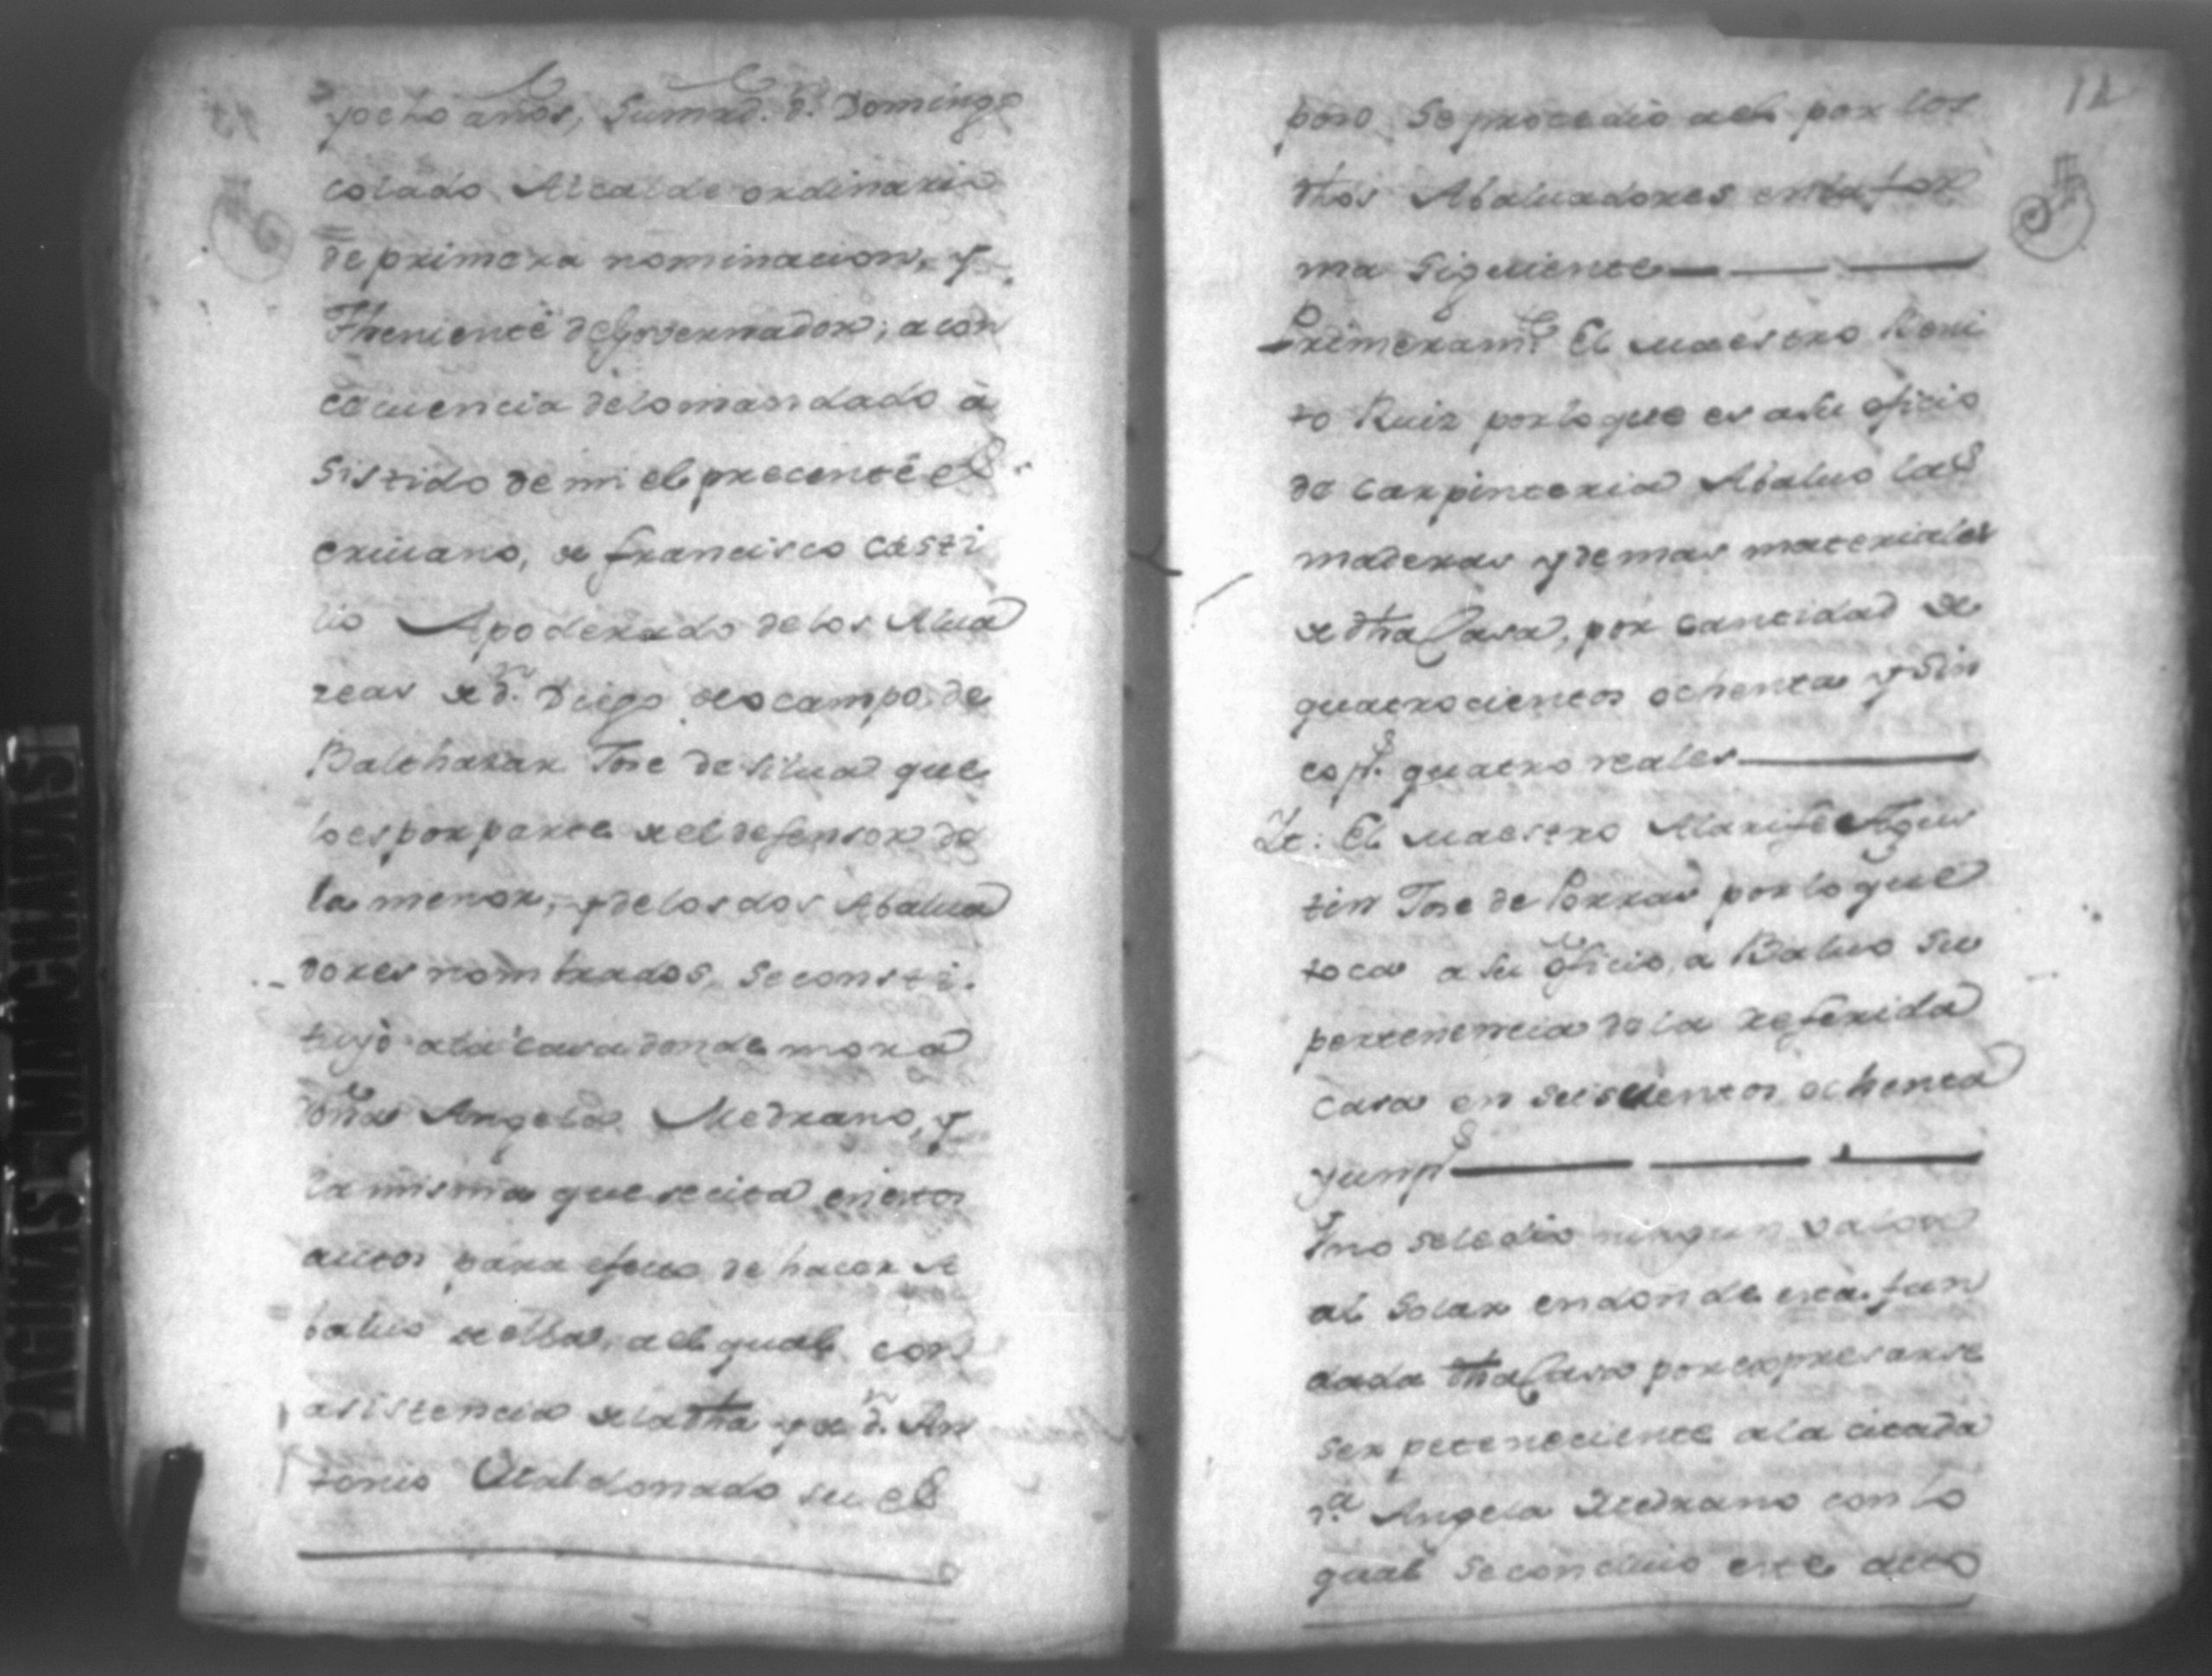 yocho años, Sumrd. dn. Domingo
colado Alcalde ordinario
de primera nominacion, y
Theniente de Governador; a con
cecuencia delo mandado à
sistido de mi el precente es
crivano, de francisco Casti
lio Apoderado de los Alva
reas de dn. Diego de ocampo, de
Balthasar Jose de silva que
lo es por parte de el defensor de
la menor, y de los dos Abalua
dores nombrados, se consti
tuyò a la casa donde mora
doña Angela Medrano, y
la misma que se cita en estos
autos para efecto de hacer A
baluo de ella, a el qual con
asistencia de la dha y de dn. An
tonio Maldonado su es
12
poso Se procedio a el por los
dhos Abaluadores en la for
ma Siguiente
Primeramte. El Maestro Beni
to Ruiz por lo que es a su oficio
de carpinteria Abaluo las
maderas y demas materiales
de dha Casa, por cantidad de
quatrocientos ochenta y Sin
co ps. quatro reales
It: El Maestro Alarife Agus
tin Jose de Porras por lo que
toca a su oficio, a Baluo su
pertenencia de la referida
casa en seiscientos ochenta
y un ps
Y no sele dio ningun valor
al Solar en donde esta fun
dada dha Casa por expresarse
ser peteneciente a la citada
da. Angela Medrano con lo
qual Se concluio este auto
PAGINAS MINCHADAS